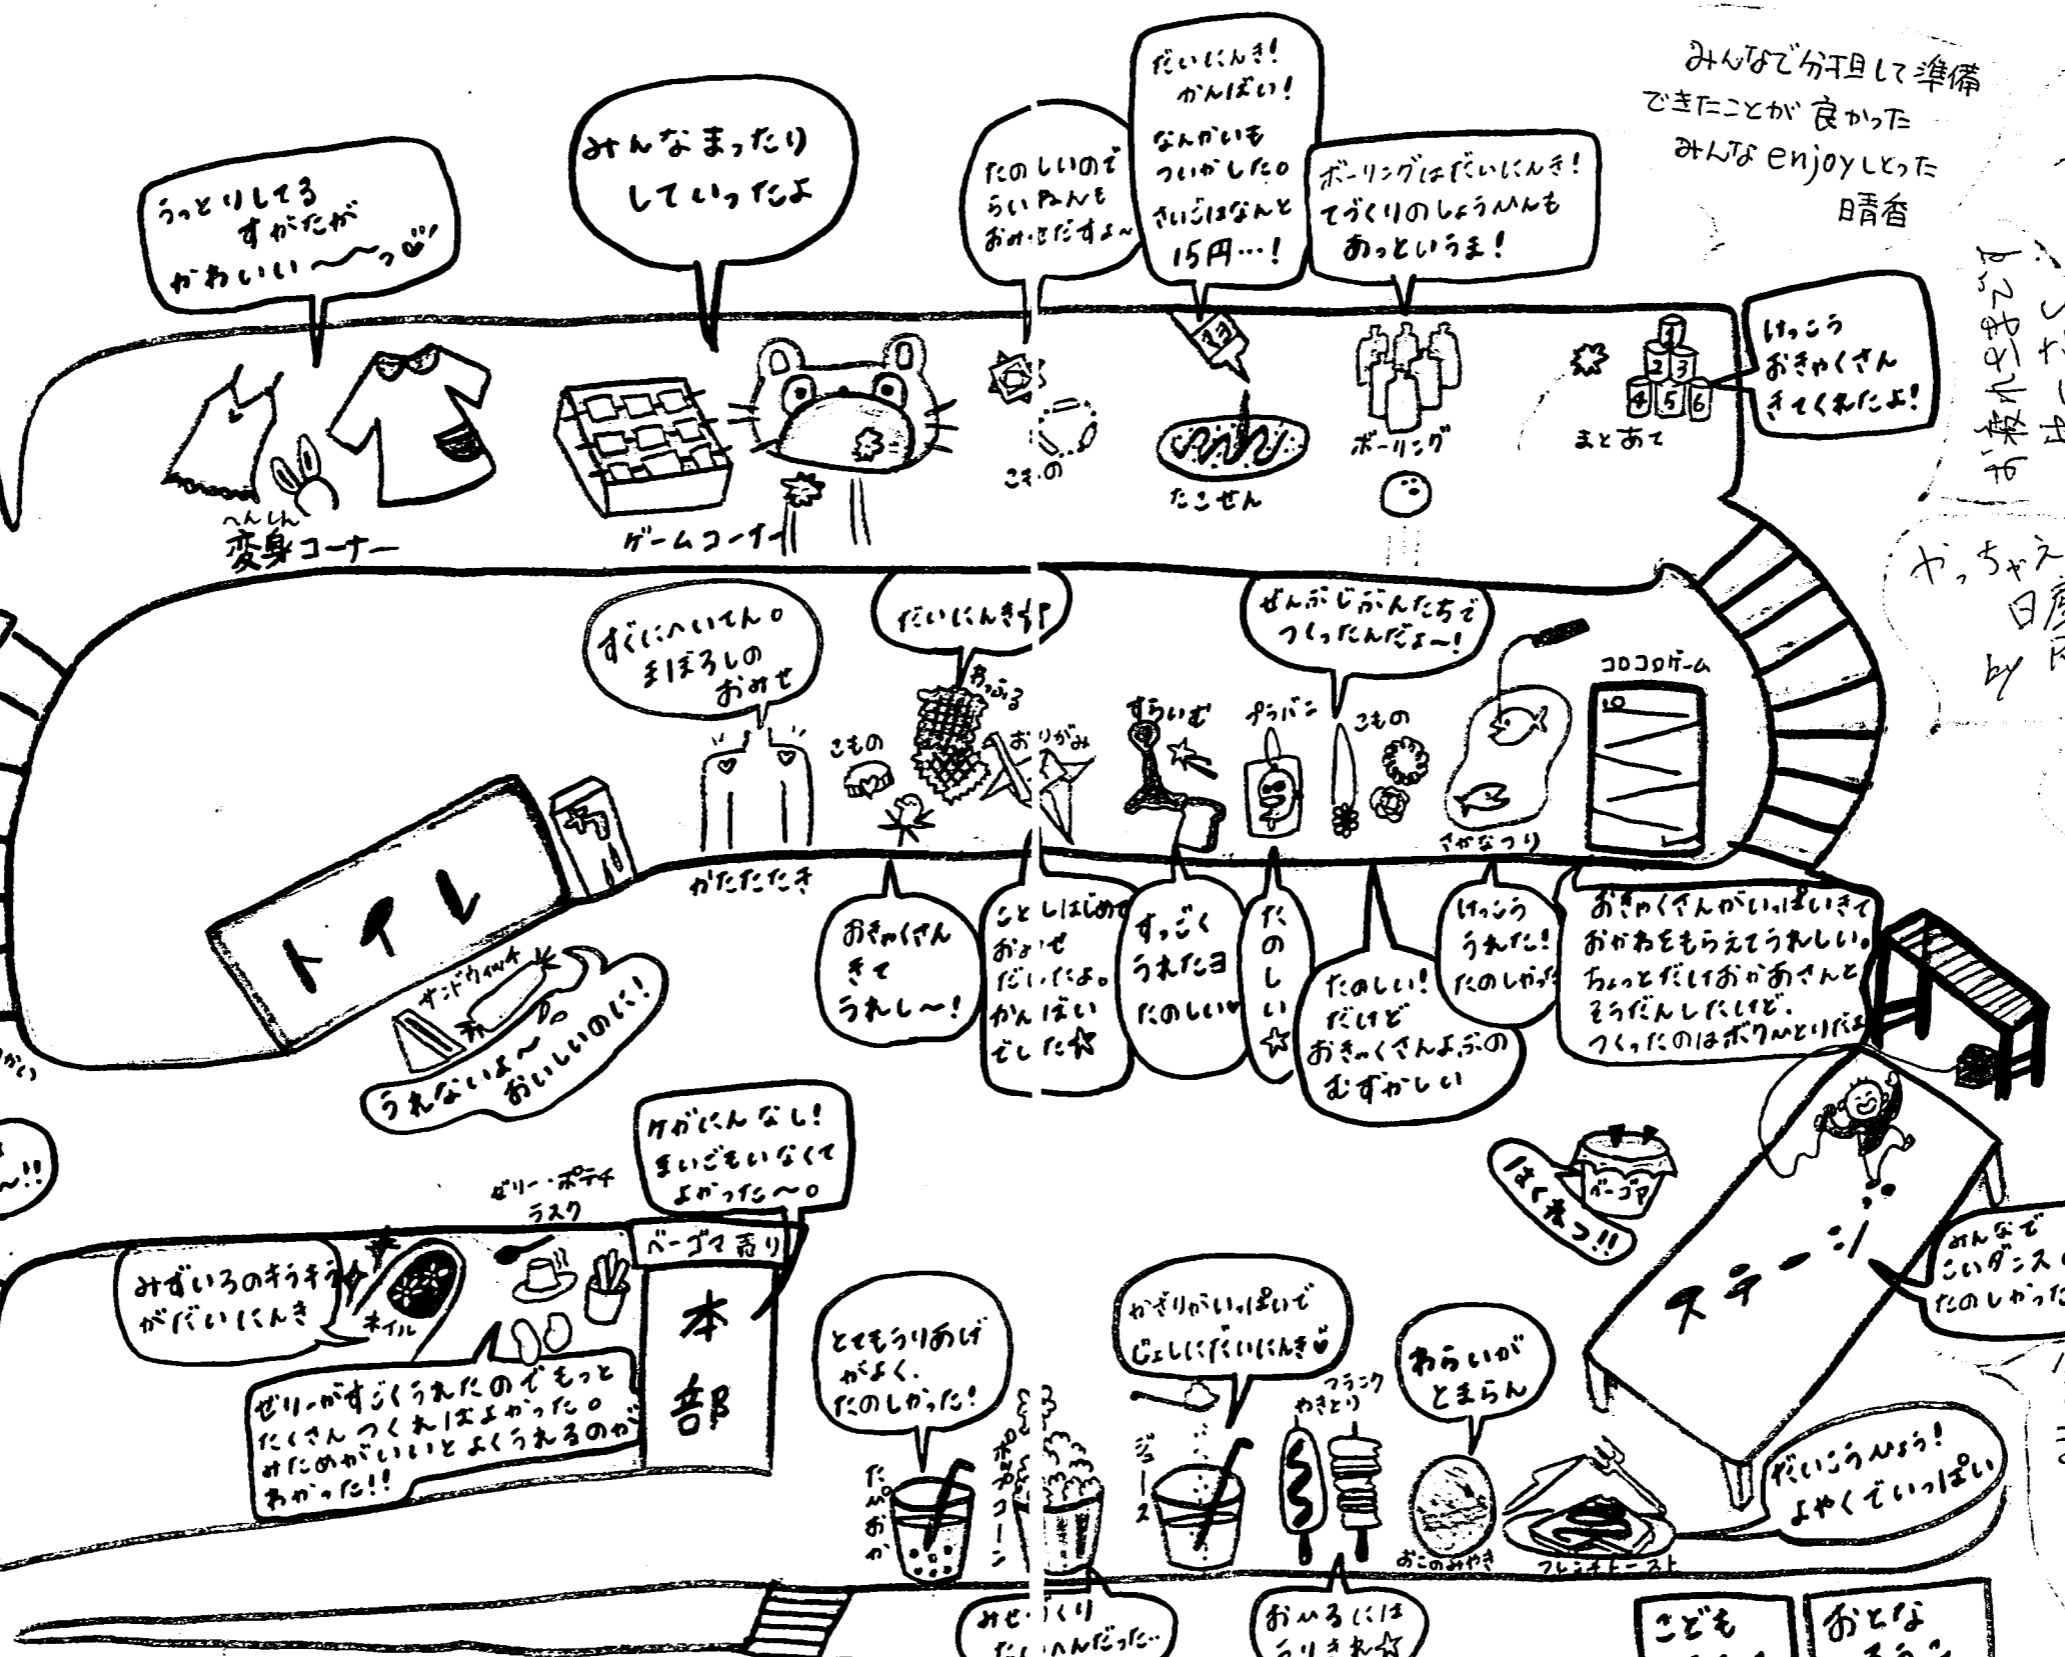 みんなで分担して準備
できたことが良かった
みんなenjoyしとった
晴香
うっとりしてる
すがたが
かわいい〜〜っ♡
みんなまったり
していったよ
たのしいので
らいねんも
おみせだすよ〜
だいにんき!
かんばい!
なんかいも
ついかした。
さいごはなんと
15円…!
ボーリングはだいにんき!
てづくりのしょうひんも
あっというま!
けっこう
おきゃくさん
きてくれたよ!
へんしん
変身コーナー
ゲームコーナー
こもの
たこせん
ボーリング
まとあて
1
2 3
4 5 6
お疲れさまでした
やっちゃえ
by
すぐにへいてん。
まぼろしの
おみせ
だいにんき!!
ぜんぶじぶんたちで
つくったんだよ〜!
かたたたき
こもの
わっふる
おりがみ
すらいむ
プラバン
こもの
さかなつり
コロコロゲーム
10
トイレ
サンドウィッチ
うれないよ〜
おいしいのに!
おきゃくさん
きて
うれし〜!
ことしはじめて
おみせ
だしたよ。
かんばい
でした☆
すっごく
うれたヨ
たのしい♥
たのしい☆
たのしい!
だけど
おきゃくさんよぶの
むずかしい
けっこう
うれた!
たのしかった
おきゃくさんがいっぱいきて
おかねをもらえてうれしい。
ちょっとだけおかあさんと
そうだんしたけど、
つくったのはボクひとりだよ
ケがにんなし!
まいごもいなくて
よかった〜。
〜!!
ゼリー・ポテチ
ラスク
ベーゴマ売り
本部
みずいろのキラキラ
がだいにんき
ネイル
ゼリーがすごくうれたのでもっと
たくさんつくればよかった。
みためがいいとよくうれるのが
わかった!!
ベーゴマ
はくねつ!!
ステージ
みんなで
こいダンス
たのしかった
とてもうりあげ
がよく、
たのしかった!
かざりがいっぱいで
じょしにだいにんき♡
わらいが
とまらん
だいこうひょう!
よやくでいっぱい
たぴおか
ポップコーン
ジュース
フランク
やきとり
おこのみやき
フレンチトースト
みせづくり
たいへんだった…
おひるには
うりきれ☆
こども
おとな